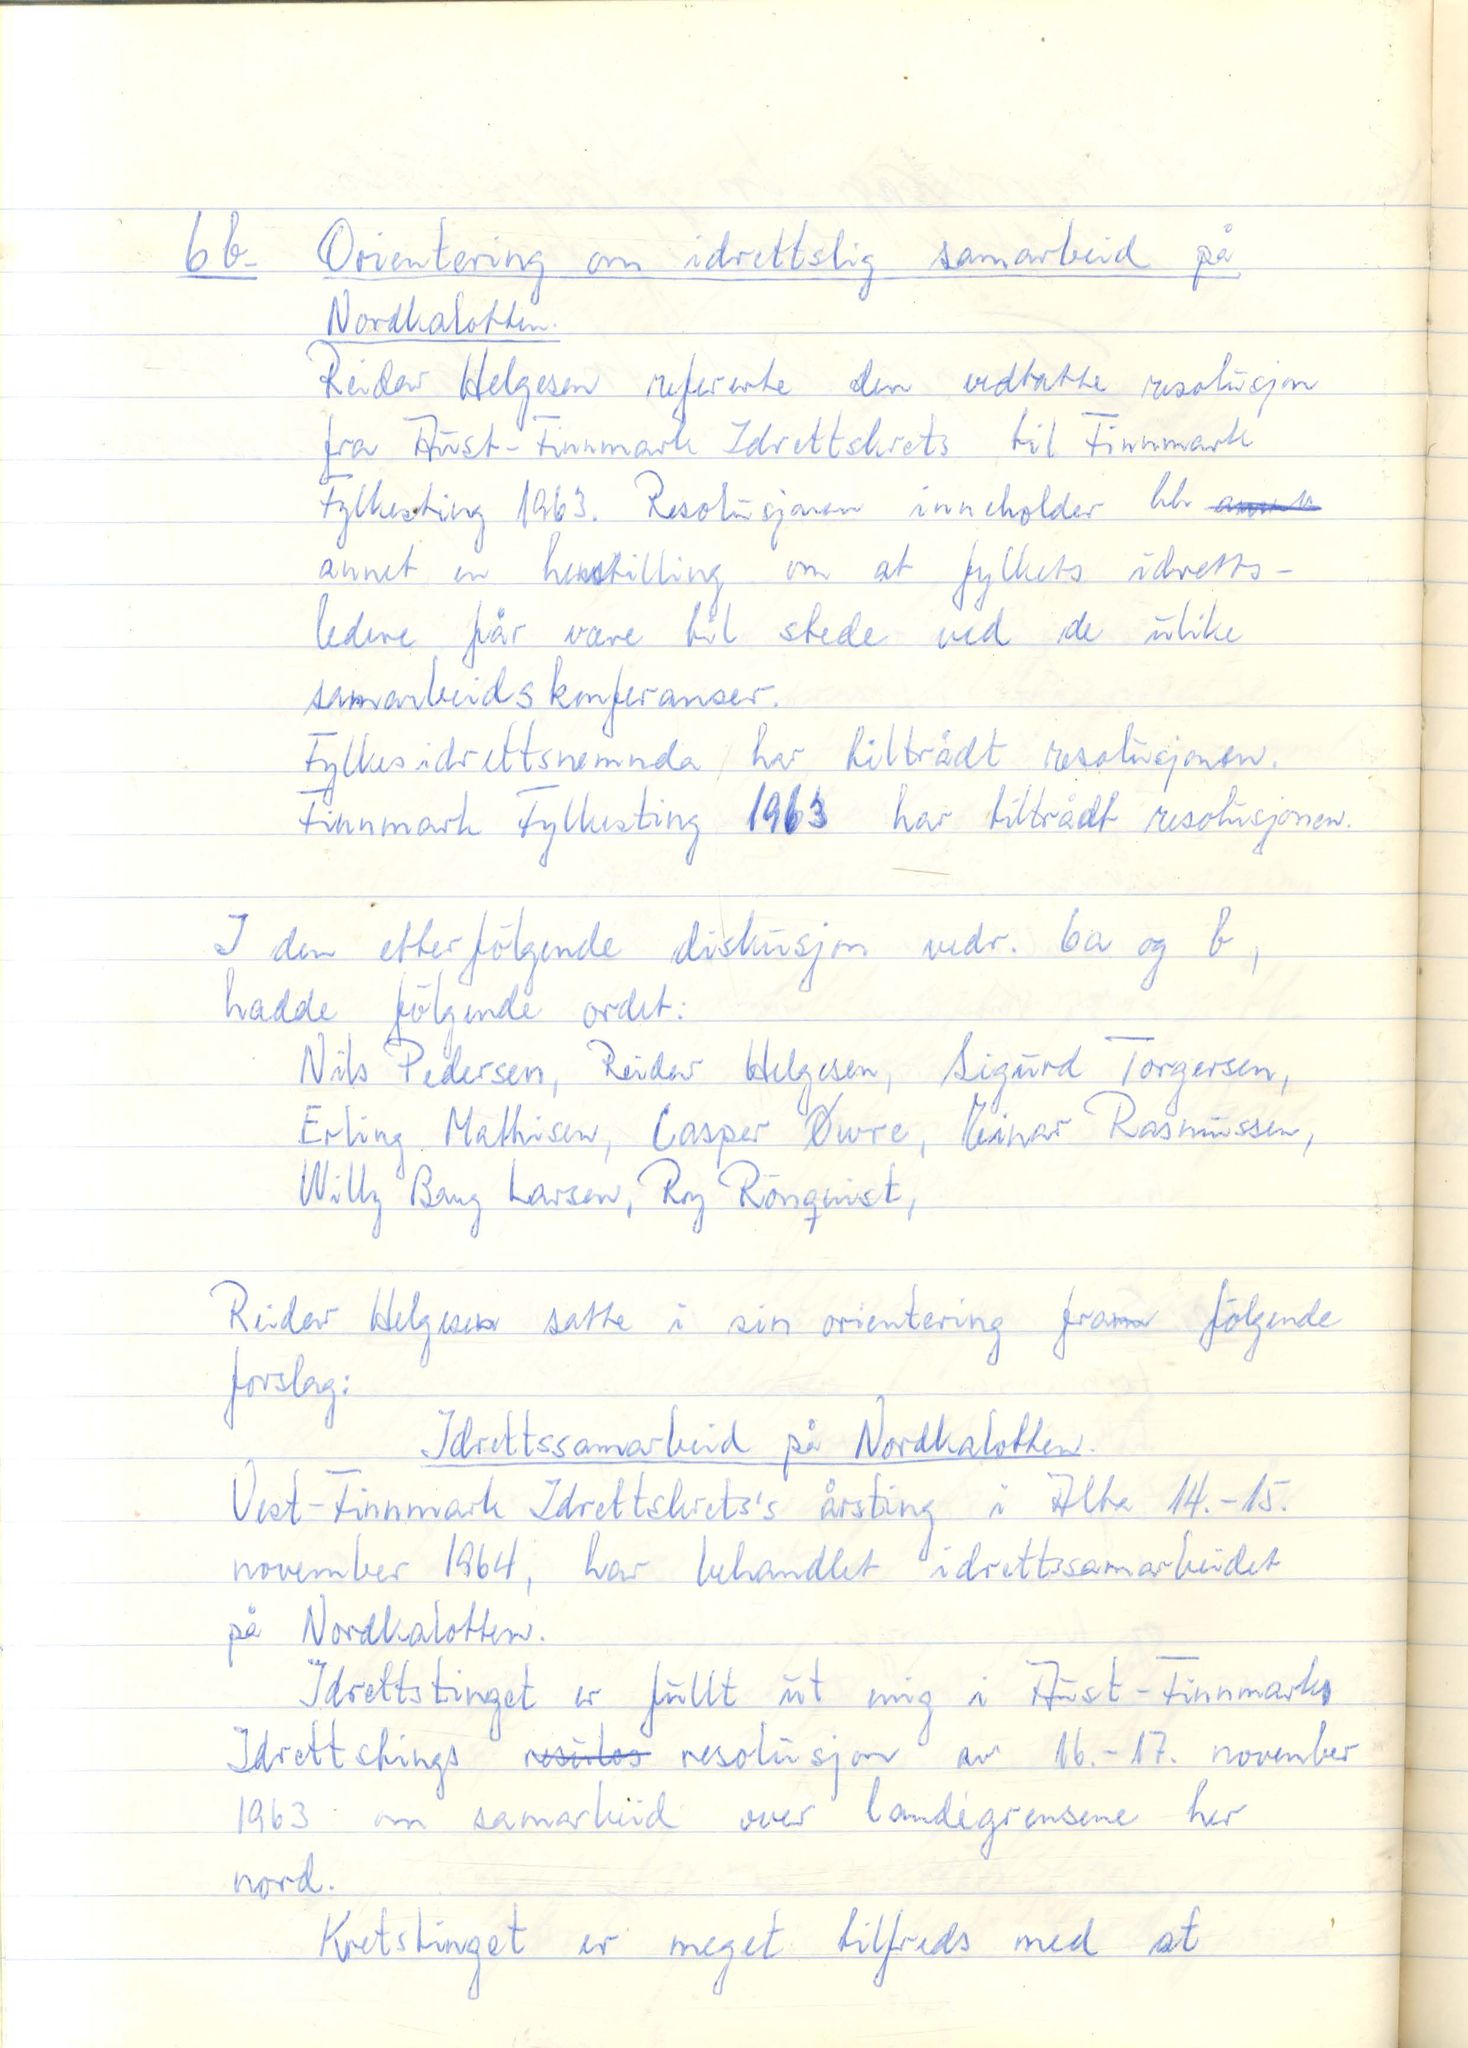 6b. Orientering om idrettslig samarbeid på
Nordkalotten.
Reidar Helgesen refererte den vedtatte resolusjon
fra Aust-Finnmark Idrettskrets til Finnmark
Fylkesting 1963. Resolusjonen inneholder bl.
annet en henstilling om at fylkets idretts-
ledere får være til stede ved de ulike
samarbeidskonferanser.
Fylkesidrettsnemnda har tiltrådt resolusjonen.
Finnmark Fylkesting 1963 har tiltrådt resolusjonen.
I den etterfølgende diskusjon vedr. 6a og b,
hadde følgende ordet:
Nils Pedersen, Reidar Helgesen, Sigurd Torgersen,
Erling Mathisen, Casper Øwre, Einar Rasmussen,
Willy Bang Larsen, Roy Rönquist,
Reidar Helgesen satte i sin orientering fram følgende
forslag:
Idrettssamarbeid på Nordkalotten.
Vest-Finnmark Idrettskrets's årsting i Alta 14.-15.
november 1964, har behandlet idrettssamarbeidet
på Nordkalotten.
Idrettstinget er fullt ut enig i Aust-Finnmark
Idrettstings resolusjon av 16.-17. november
1963 om samarbeid over landegrensene her
nord.
Kretstinget er meget tilfreds med at